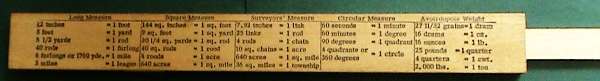 Long Measure Square Measure Surveyors' Measure Circular Measure Avoirdupois Weight
12 inches = 1 foot 144 sq. inches = 1 sq. foot 7.92 inches = 1 link 60 seconds = 1 minute 27 11/32 grains = 1 dram
3 feet = 1 yard 9 sq. feet = 1 sq. yard 25 links = 1 rod 60 minutes = 1 degree 16 drams = 1 oz.
5 1/2 yards = 1 rod 30 1/4 sq. yds. = 1 sq. rod 4 rods = 1 chain 90 degrees = 1 quadrant 16 ounces = 1 lb.
40 rods = 1 furlong 40 sq. rods = 1 rood 10 sq. chains = 1 acre 4 quadrants or = 1 circle 25 pounds = 1 quarter
8 furlongs or 1760 yds. = 1 mile 4 roods = 1 acre 640 acres = 1 sq. mile 360 degrees 4 quarters = 1 cwt.
3 miles = 1 league 640 acres = 1 sq. mile 36 sq. miles = 1 township 2,000 lbs. = 1 ton